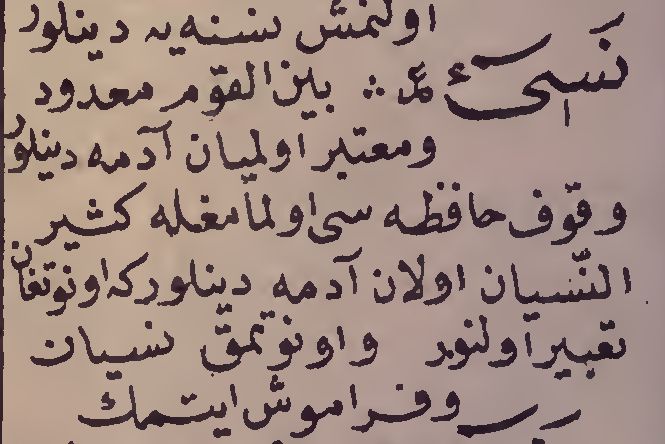 اولنمش نسنه یه دینلور
نسئ عم ؞ بین القوم معدود
ومعتبر اولمیان آدمه دینلور
وقوف حافظه سی اولمامغله کثیر
النّسیان اولان آدمه دینلورکه اونوتغان
تعبیر اولنور واونوتمق نسیان
وفراموش ایتمك